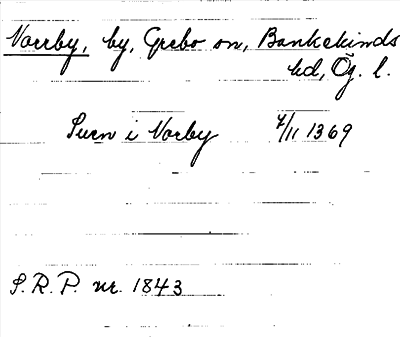 Norrby, by, Grebo sn, Bankekinds
hd, Ög. l.
Suen i Norby 7/11 1369
S.R.P. nr. 1843